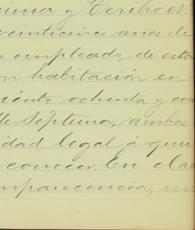 cima y Toribio
veinticinco años de
empleado, de esta
on habitación en
ciento ochenta y
de Séptima, ambos
idad legal á quie
conocer. En el ac
mparecencia,